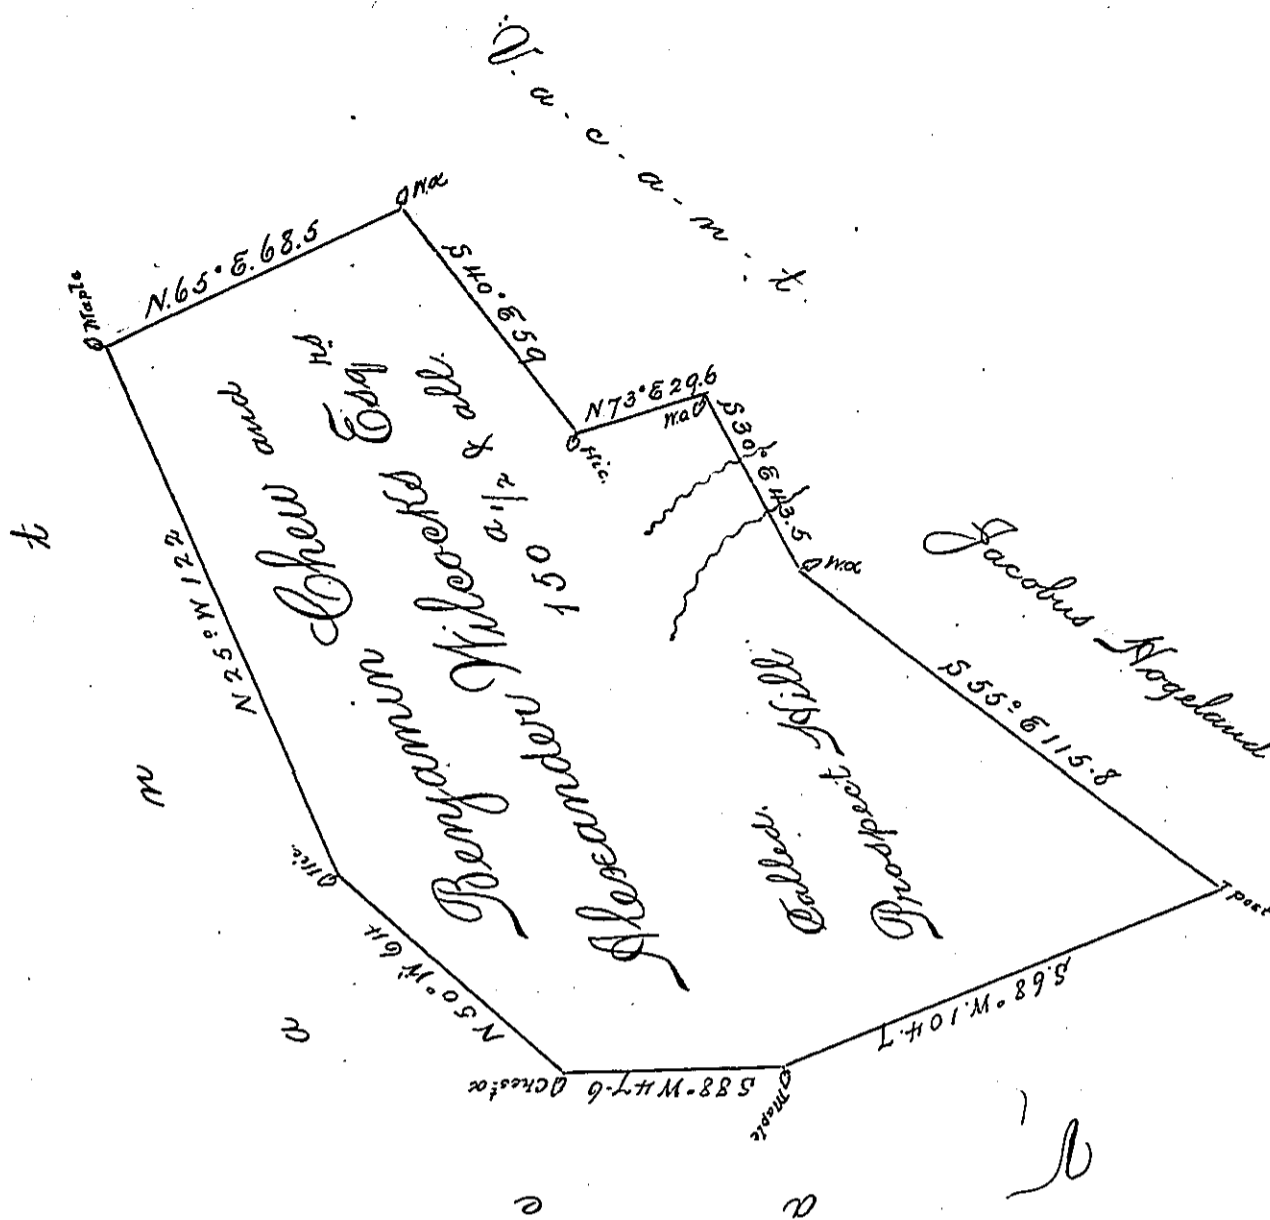 V. a. c. a. n. t.
Maple
N. 65° E. 68.5
W.o
S 40° E 59
Hic.
N 73° E 29.6
W.o
S 30° E 43.5
W.o
S 55° E 115.8
post
S. 68° W. 104.7
Maple
S 88° W 47.6
Chest. o
N 50° W 64
Hic.
N 25° W 122
Benjamin Chew and
Alexander Wilcocks Esqrs
150 a 1/2 & all.
Called.
Prospect Hill
Jacobus Hogeland
V a c a n t